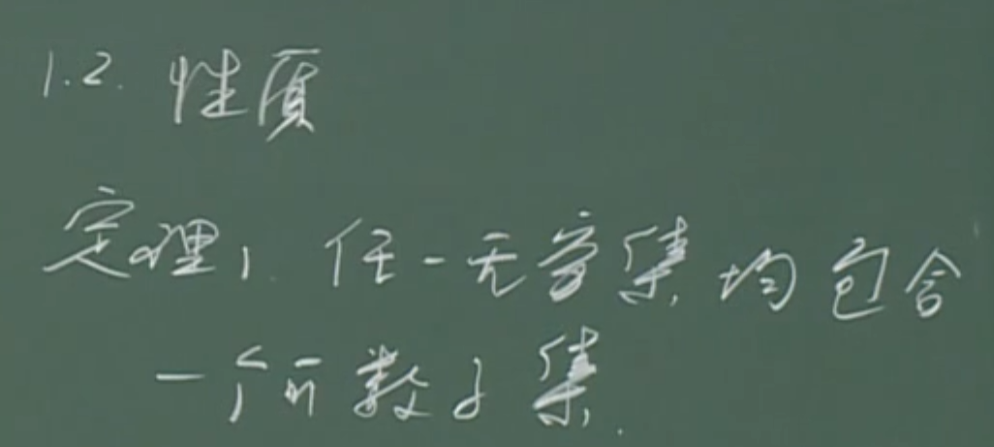 1.2. 性质
定理1. 任一无穷集均包含
一个可数子集.